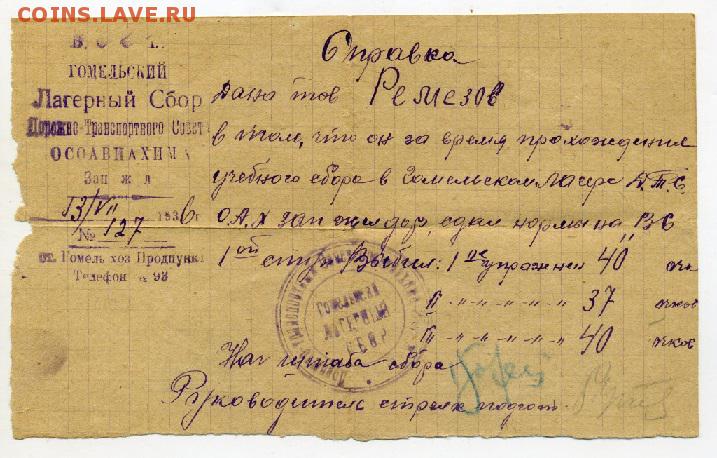 COINS.LAVE.RU
ГОМЕЛЬСКИЙ
Лагерный Сбор
Дорожно-Транспортного Совета
ОСОАВИАХИМА
Зап ж д
13/VII 1936 г
№ 127
ст. Гомель хоз Продпункт
Телефон № 93
Справка
Дана тов Ремезов
в том, что он за время прохождения
учебного сбора в Гомельском Лагере Д.Т.С.
О.А.Х зап жел дор, сдал нормы на ВС
1ой ст. Выбил: 1ое упражнен 40 очк
II " " " " 37 очков
III " " " " 40 очков
ГОМЕЛЬСКИЙ
ЛАГЕРНЫЙ
СБОР
Нач штаба сбора
Руководитель стрелк подгот.